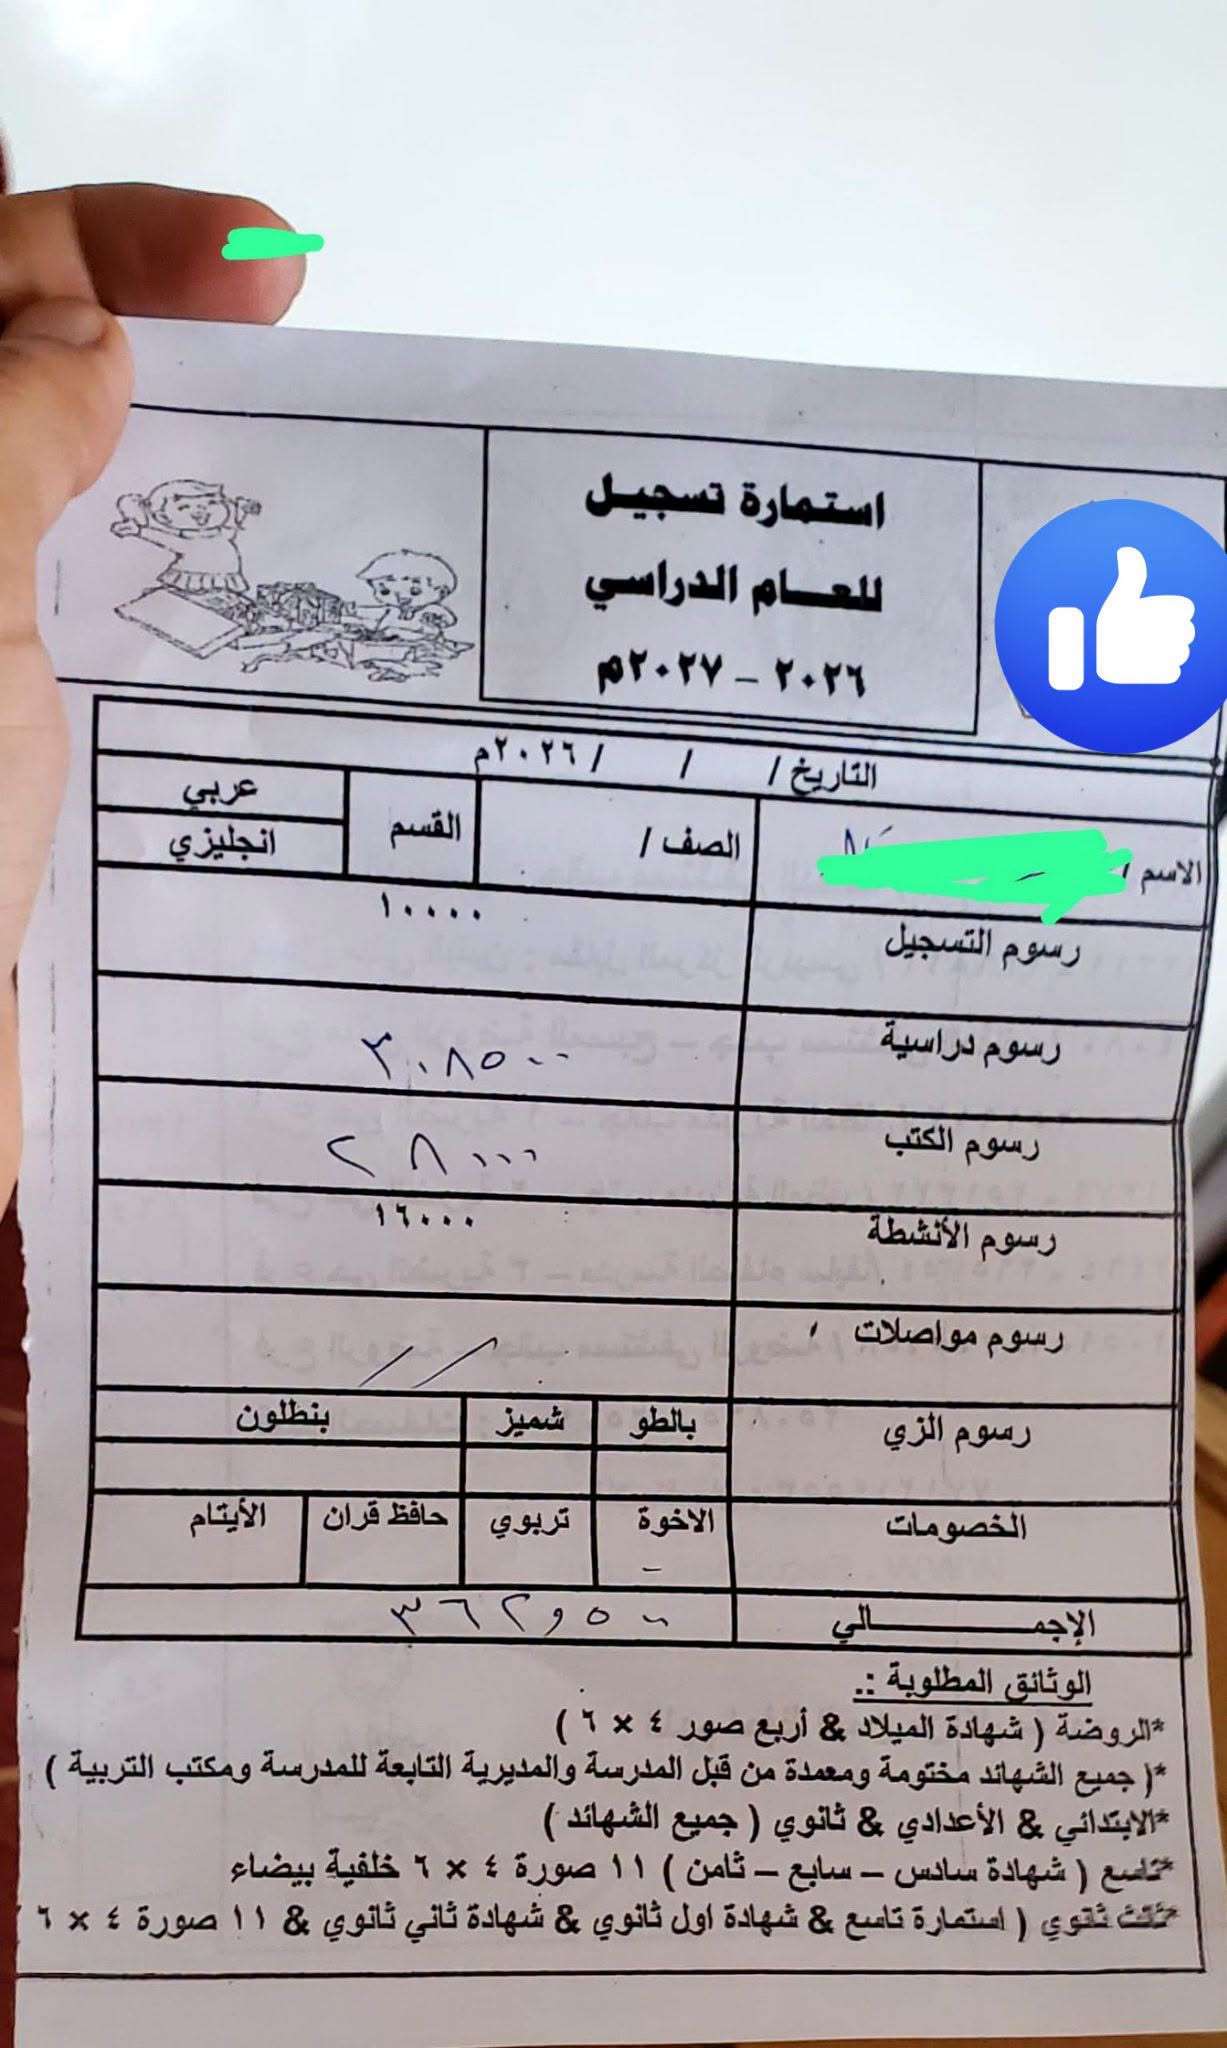 استمارة تسجيل
للعام الدراسي
٢٠٢٦ - ٢٠٢٧م
التاريخ / / / ٢٠٢٦م
الاسم / الصف / القسم عربي
انجليزي
رسوم التسجيل ١٠٠٠٠
رسوم دراسية ٣٠٨٥٠٠
رسوم الكتب ٢٨٠٠٠
رسوم الأنشطة ١٦٠٠٠
رسوم مواصلات
رسوم الزي بالطو شميز بنطلون
الخصومات الاخوة تربوي حافظ قران الأيتام
الإجمــــــالي ٣٦٢٥٠٠
الوثائق المطلوبة :.
*الروضة ( شهادة الميلاد & أربع صور ٤ × ٦ )
*( جميع الشهائد مختومة ومعمدة من قبل المدرسة والمديرية التابعة للمدرسة ومكتب التربية )
*الابتدائي & الأعدادي & ثانوي ( جميع الشهائد )
*تاسع ( شهادة سادس – سابع – ثامن ) ١١ صورة ٤ × ٦ خلفية بيضاء
*ثالث ثانوي ( استمارة تاسع & شهادة اول ثانوي & شهادة ثاني ثانوي & ١١ صورة ٤ × ٦